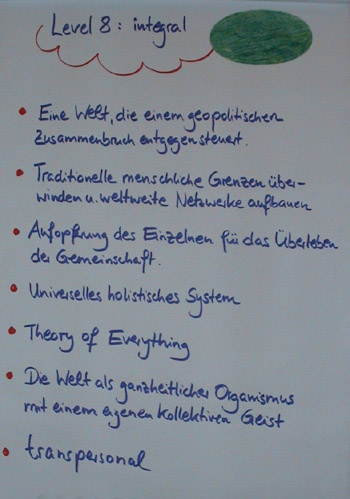 Level 8: integral
• Eine Welt, die einem geopolitischen
Zusammenbruch entgegensteuert.
• Traditionelle menschliche Grenzen über-
winden u. weltweite Netzwerke aufbauen
• Aufopferung des Einzelnen für das Überleben
der Gemeinschaft.
• Universelles holistisches System
• Theory of Everything
• Die Welt als ganzheitlicher Organismus
mit einem eigenen kollektiven Geist
• transpersonal